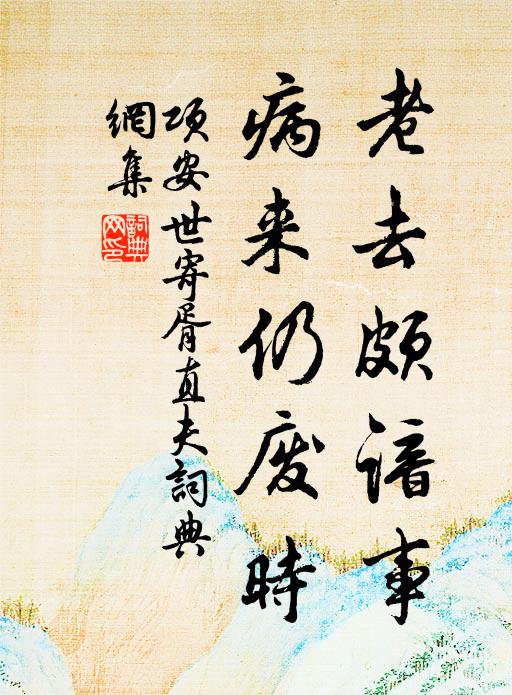 老去頗諳事
病来仍废時
項安世寄胥直夫詞典
網集
詞典
网印